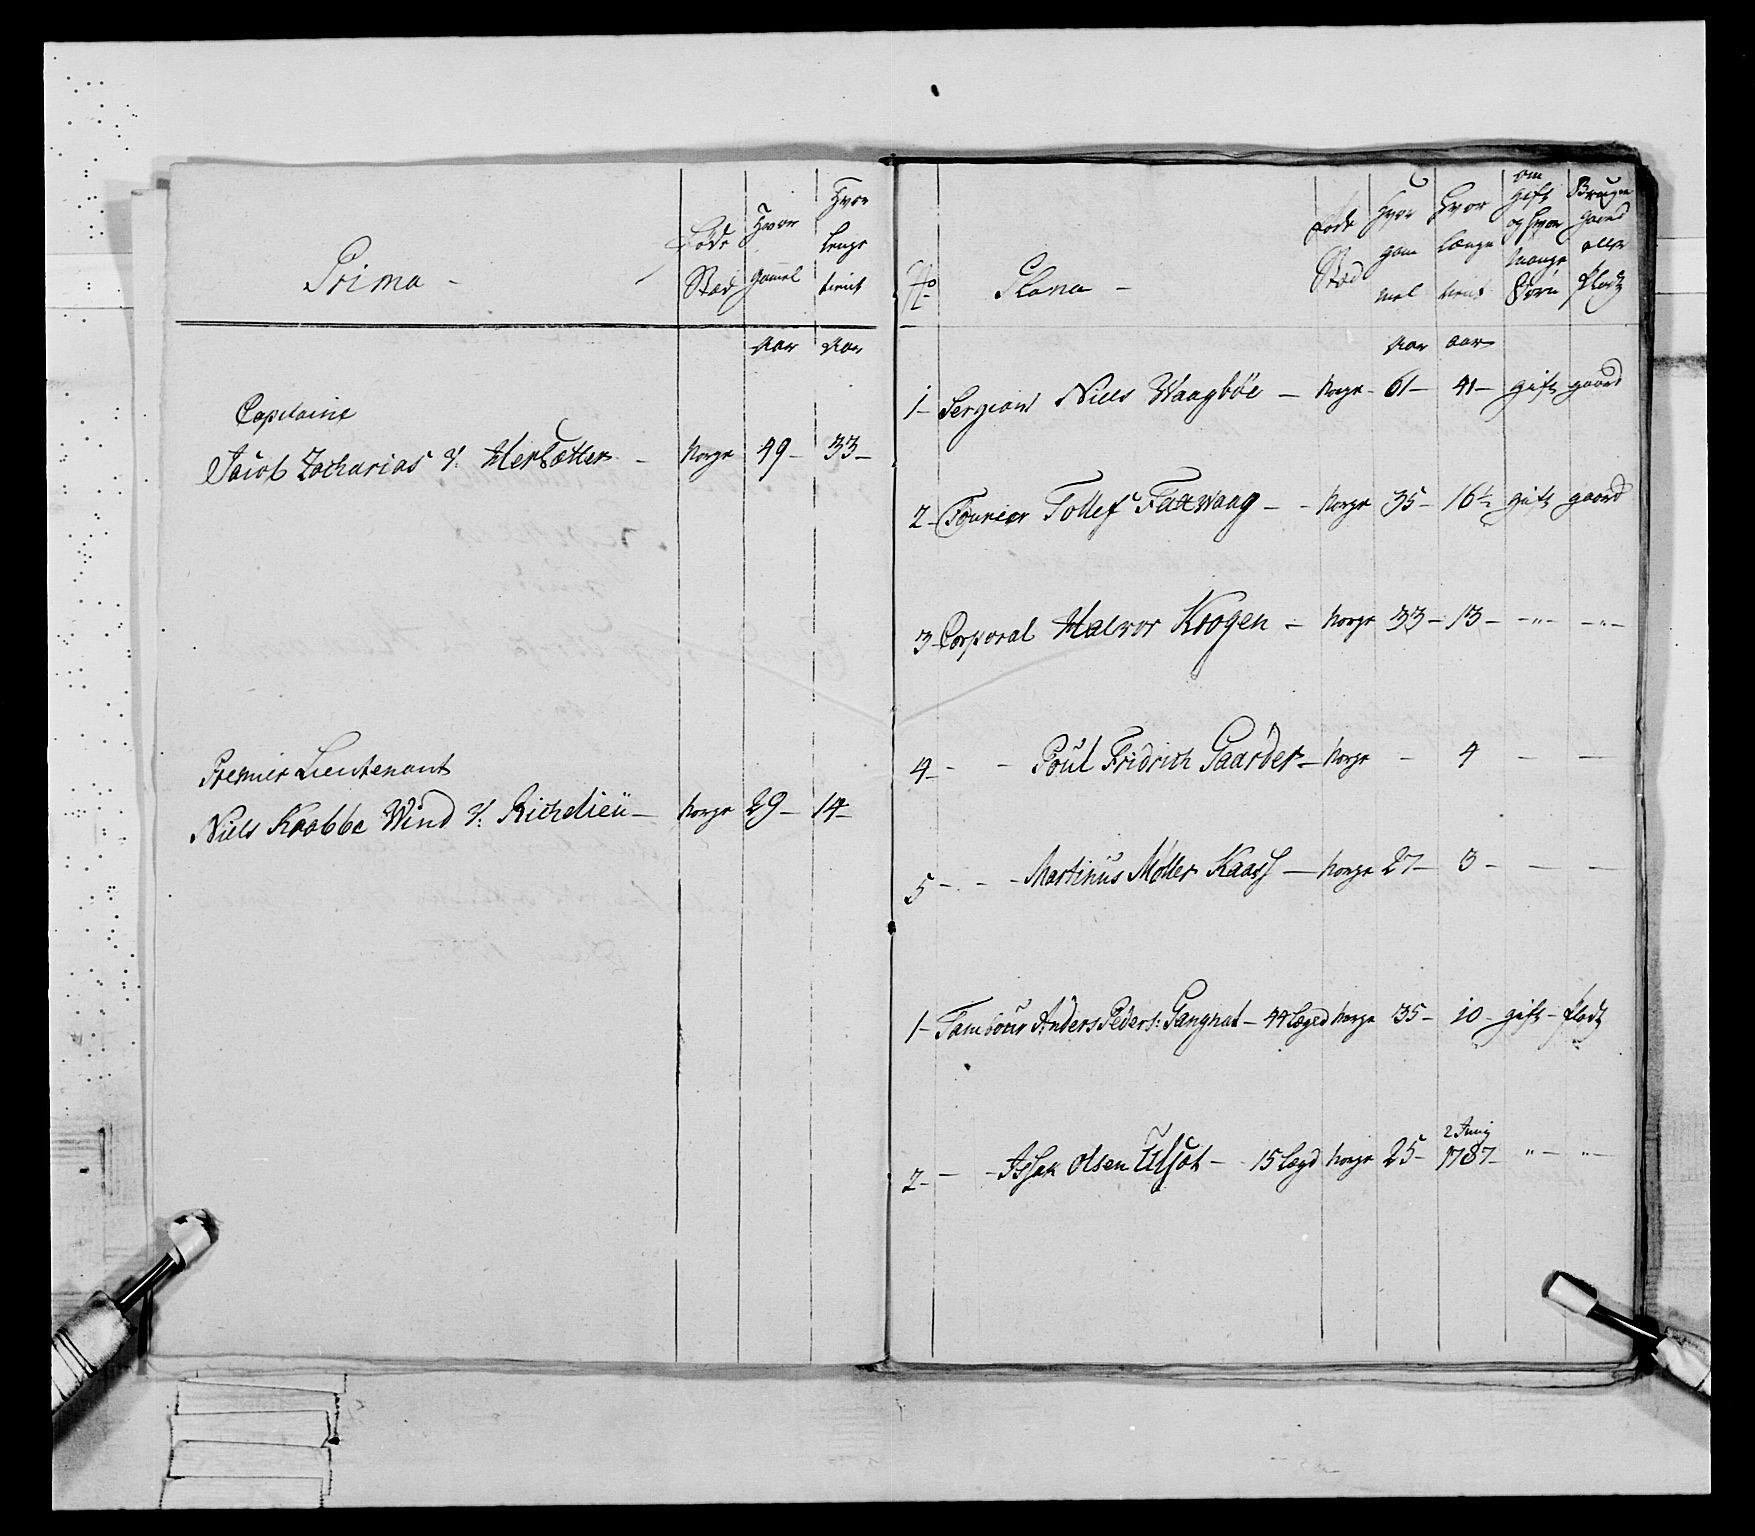 Prima -
Føde Stæd
Hvor gamel
Hvor lenge tient
Aar Aar
Capitaine
Jacob Zacharias V: Mertzætter - Norge 49 - 33 -
Premier Lieutenant
Niels Krabbe Wind V: Richelieü - Norge 29 - 14 -
No
Plana -
Føde Stæd
Hvor gam mel
Hvor længe tient
om gift og hvor mange Børn
Bruger gaard eller Pladz
Aar aar
1 - Sergeant Niels Waagbøe - Norge - 61 - 41 - gift gaard
2 - Fourier Tollef Fattwaag - - Norge 35 - 16½ gift gaard
3 Corporal Halvor Krogen - Norge 33 - 13 - - " - - " -
4 - - - Poül Fridrich Gaarder - Norge - 4 - -
5 - - - Martinüs Møller Kaas - Norge 27 - 3 - - -
1 - Tambour Anders Peders: - 44 Lægd Norge 35 - 10 - gift - Pladz
2 - - - Olsen - 15 Lægd Norge 25 - 2 Junij 1787 - " - " -